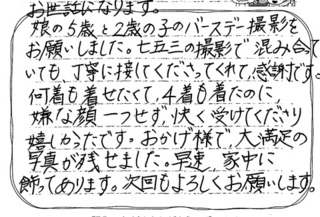 お世話になります。
娘の5歳と2歳の子のバースデー撮影を
お願いしました。七五三の撮影で混み合って
いても、丁寧に接してくださってくれて、感謝です。
何着も着せたくて、4着も着たのに、
嫌な顔一つせず、快く受けてくださり
嬉しかったです。おかげ様で、大満足の
写真が残せました。早速、家中に
飾ってあります。次回もよろしくお願いします。